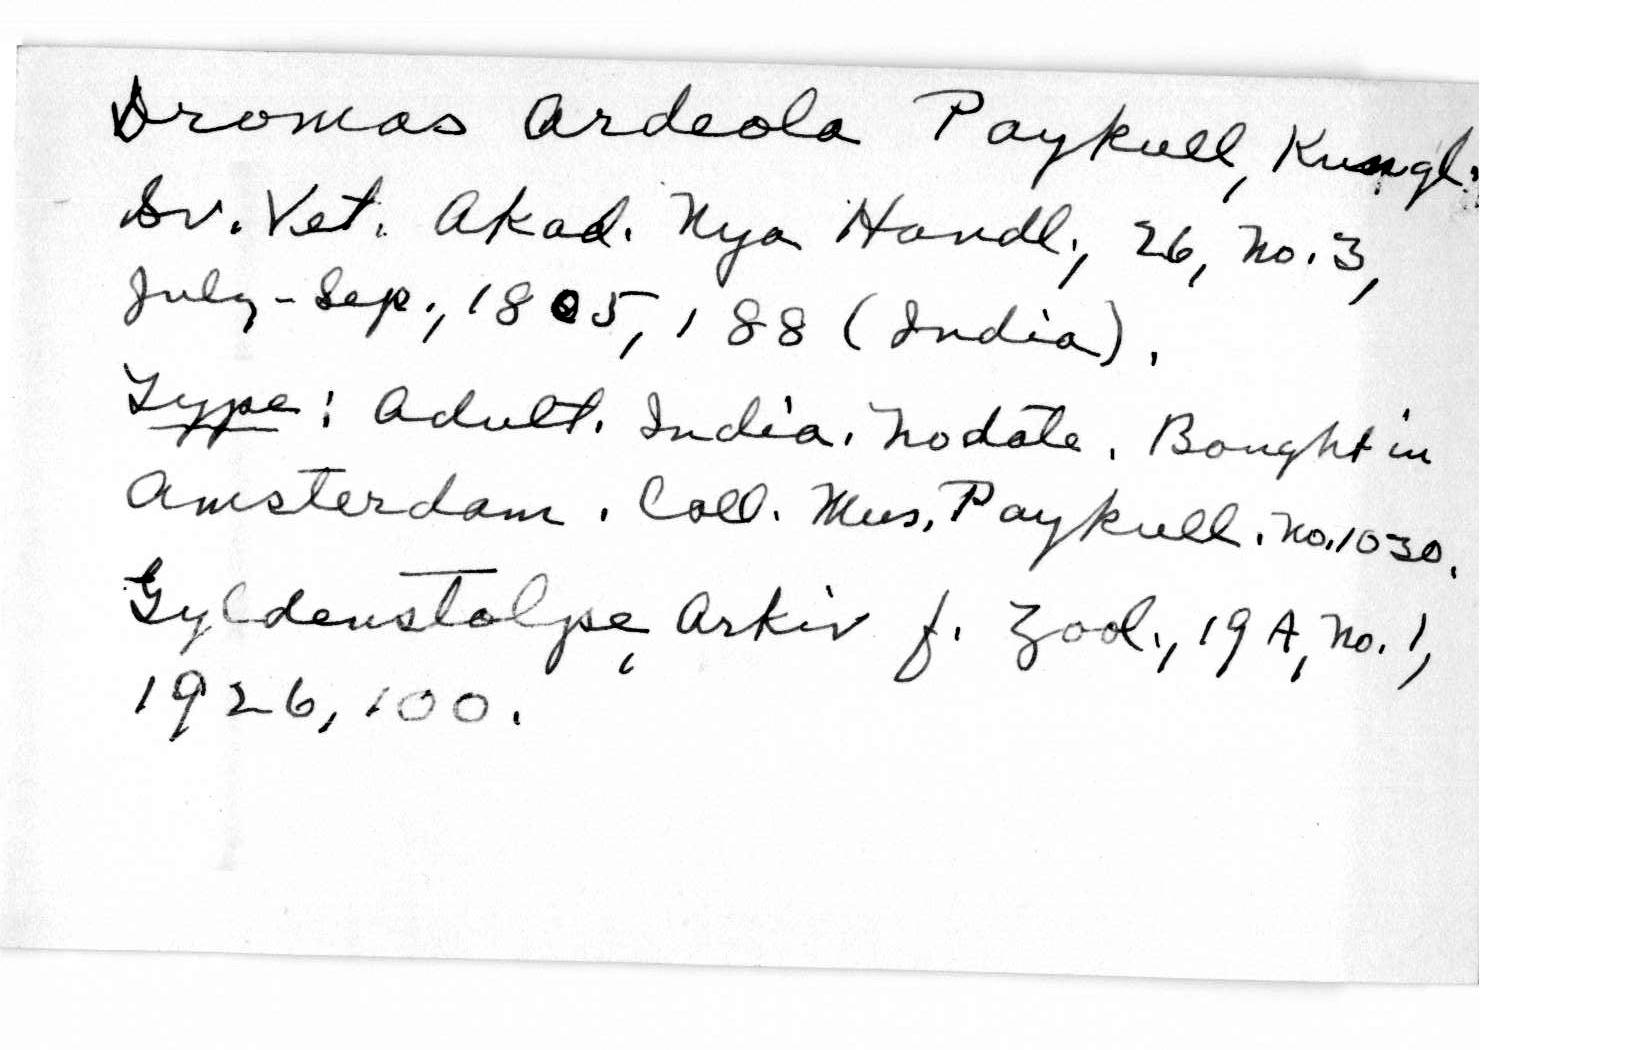 Dromas Ardeola Paykull, Kungl.
Sv. Vet. Akad. Nya Handl., 26, No. 3,
July-Sep., 1805, 188 (India).
Type: Adult. India. No date. Bought in
Amsterdam. Coll. Mus. Paykull. No. 1030.
Gyldenstolpe, Arkiv f. Zool., 19 A, No. 1,
1926, 100.